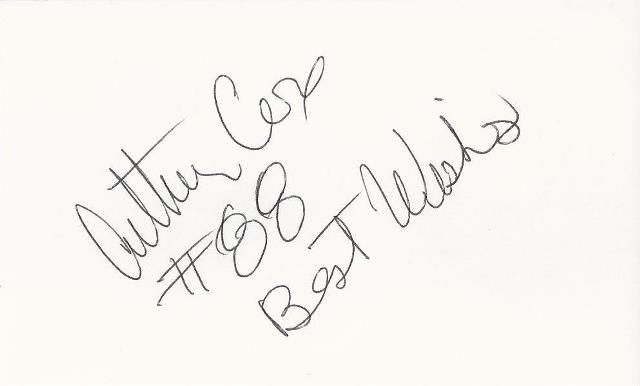 Arthur Cox
#88
Best Wishes